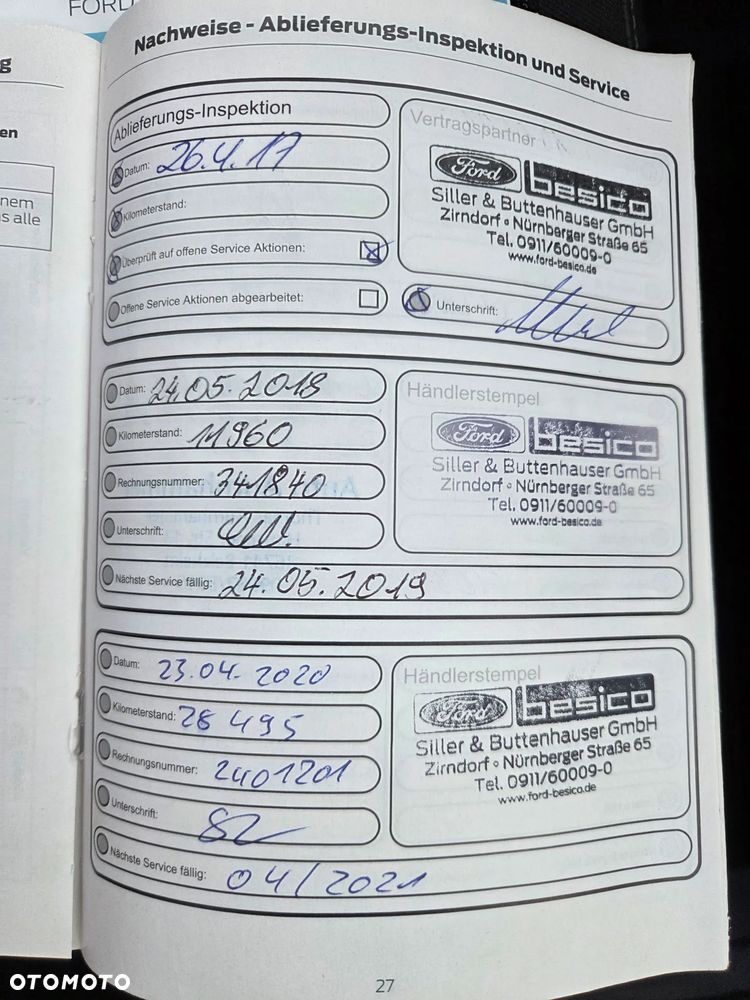 FORD
g
en
nem
s alle
Nachweise - Ablieferungs-Inspektion und Service
Ablieferungs-Inspektion
Datum: 26.4.17
Kilometerstand:
Überprüft auf offene Service Aktionen:
Offene Service Aktionen abgearbeitet:
Vertragspartner
Ford besico
Siller & Buttenhauser GmbH
Zirndorf • Nürnberger Straße 65
Tel. 0911/60009-0
www.ford-besico.de
Unterschrift:
Datum: 24.05.2018
Kilometerstand: 11960
Rechnungsnummer: 341840
Unterschrift:
Nächste Service fällig: 24.05.2019
Händlerstempel
Ford besico
Siller & Buttenhauser GmbH
Zirndorf • Nürnberger Straße 65
Tel. 0911/60009-0
www.ford-besico.de
Datum: 23.04.2020
Kilometerstand: 28495
Rechnungsnummer: 2401201
Unterschrift:
Nächste Service fällig: 04/2021
Händlerstempel
Ford besico
Siller & Buttenhauser GmbH
Zirndorf • Nürnberger Straße 65
Tel. 0911/60009-0
www.ford-besico.de
27
OTOMOTO